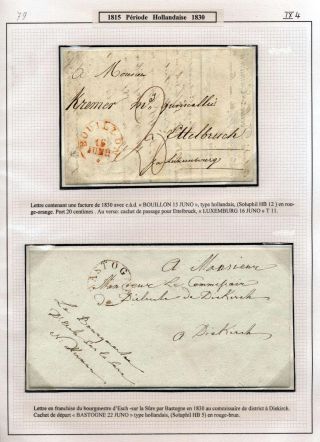 79
1815 Période Hollandaise 1830
IX 4
A Monsieur
Kremer
Ettelbruck
par Luxembourg
BOUILLON
15
JUNO
20
Lettre contenant une facture de 1830 avec c.à.d. « BOUILLON 15 JUNO », type hollandais, (Soluphil HB 12 ) en rou-
ge-orange. Port 20 centimes . Au verso: cachet de passage pour Ettelbruck, « LUXEMBURG 16 JUNO » T 11.
BASTOGNE
A Monsieur
Monsieur Le Commissaire
de District de Diekirch
à Diekirch
Le Bourgmestre
D'Esch sur la Sûre
Lettre en franchise du bourgmestre d'Esch -sur la Sûre par Bastogne en 1830 au commissaire de district à Diekirch.
Cachet de départ « BASTOGNE 22 JUNO » type hollandais, (Soluphil HB 5) en rouge-brun.